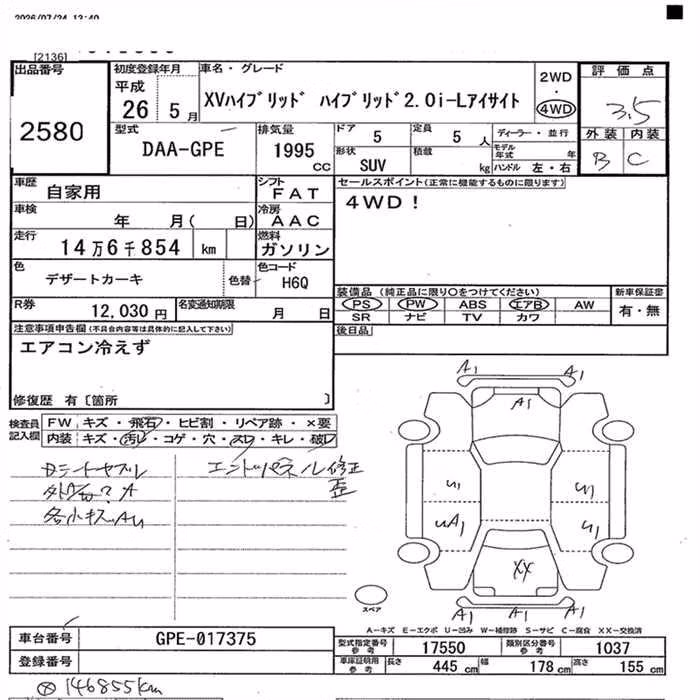 2026/07/24 13:40
[2136]
出品番号
2580
初度登録年月
平成
26 5月
車名・グレード
XVハイブリッド ハイブリッド2.0i-Lアイサイト
2WD
・
4WD
評価点
3.5
外装 内装
B C
型式
DAA-GPE
排気量
1995
CC
ドア 5
定員 5人
形状
SUV
積載 kg
ディーラー・並行
モデル年式 年
ハンドル 左・右
車歴
自家用
シフト
FAT
車検
年 月( 日)
冷房
AAC
走行
14万6千854 km
燃料
ガソリン
色
デザートカーキ
色替
色コード
H6Q
R券
12,030円
名変通知期限
月 日
セールスポイント(正常に機能するものに限ります)
4WD!
装備品 (純正品に限り○をつけてください)
PS PW ABS エアB AW
SR ナビ TV カワ
新車保証書
有・無
後日品
注意事項申告欄(不具合内容等は具体的に記入して下さい)
エアコン冷えず
修復歴 有〔箇所 〕
検査員
記入欄
FW キズ・飛石・ヒビ割・リペア跡・×要
内装 キズ・汚レ・コゲ・穴・スレ・キレ・破レ
各小キズAU
エンドパネル修正
歪
A1 A1
A1
U1 U1
UA1 U1
XX
A1 A1 A1
スペア
A-キズ E-エクボ U-凹み W-補修跡 S-サビ C-腐食 XX-交換済
車台番号
GPE-017375
登録番号
型式指定番号
参考
17550
類別区分番号
参考
1037
車庫証明用
参考
長さ 445 cm
幅 178 cm
高さ 155 cm
⊗146855km